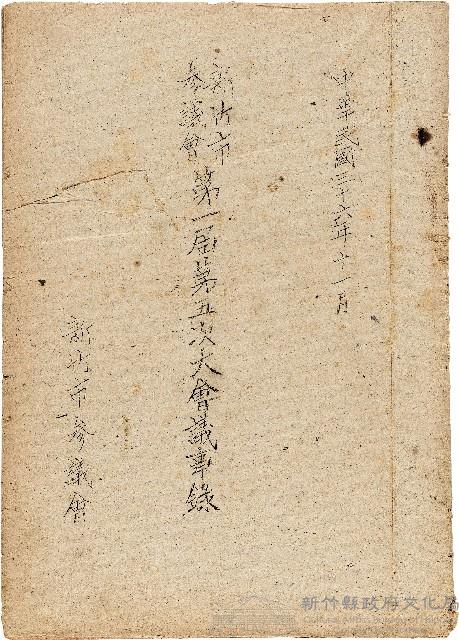 中華民國三十六年十一月
新竹市
參議會
第一屆第五次大會議事錄
新竹市參議會
新竹縣政府文化局